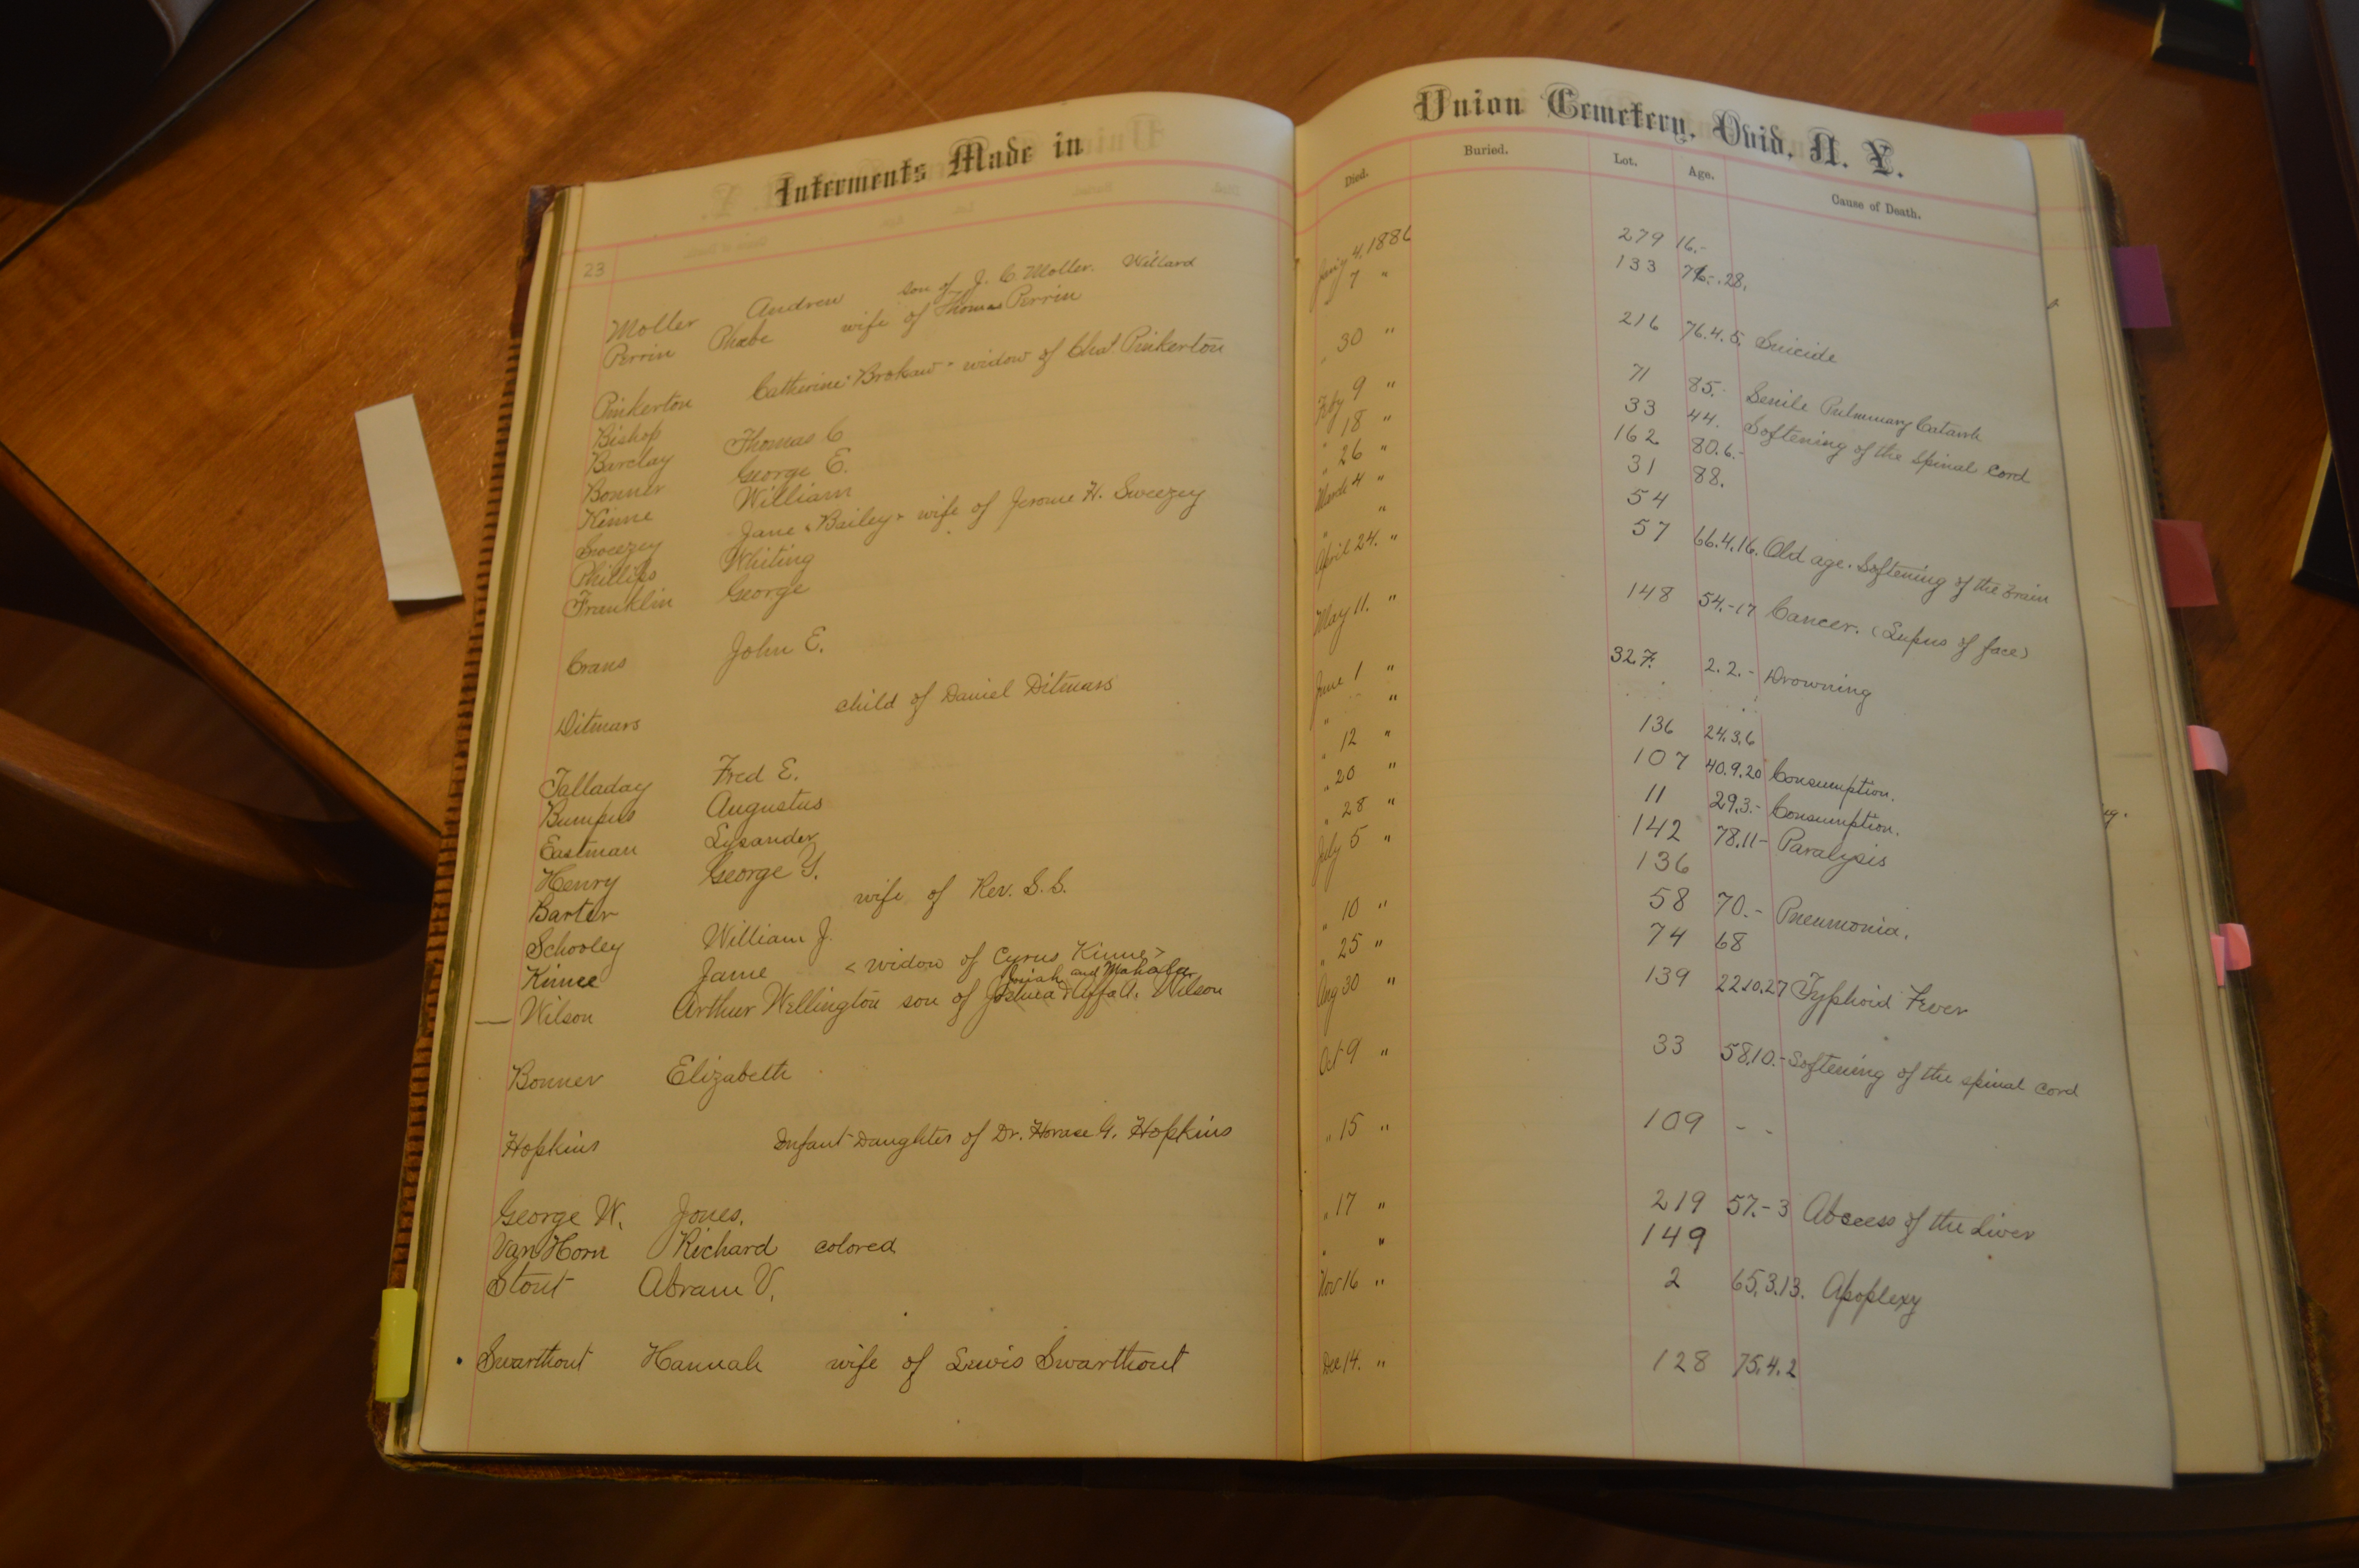 Interments Made in
23
Moller Andrew son of J. C. Moller. Willard
Perrin Phebe wife of Thomas Perrin
Pinkerton Catherine "Brokaw" widow of Chat. Pinkerton
Bishop Thomas C
Barclay George E.
Bonner William
Kinne Jane "Bailey" wife of Jerome H. Sweezey
Sweezey Whiting
Phillips George
Franklin
Crans John E.
Ditmars child of Daniel Ditmars
Talladay Fred E.
Bumpus Augustus
Eastman Lysander
Henry George Y.
Barter wife of Rev. S. S.
Schooley William J.
Kinne Jane < widow of Cyrus Kinne >
Josiah and Mahala
Wilson Arthur Wellington son of Joshua & Affa A. Wilson
Bonner Elizabeth
Hopkins Infant Daughter of Dr. Horace G. Hopkins
George W. Jones.
Van Horn Richard colored
Stout Abram V.
Swarthout Hannah wife of Lewis Swarthout
Union Cemetery, Ovid, N. Y.
Died. Buried. Lot. Age. Cause of Death.
4, 1886 279 16.-
7 " 133 76-.28.
" 30 " 216 76.4.5. Suicide
Feby 9 " 71 85.- Senile Pulmunary Catarrh
" 18 " 33 44. Softening of the Spinal Cord
" 26 " 162 80.6.-
March 4 " 31 88.
" " 54
April 24. " 57 66.4.16. Old age. Softening of the Brain
May 11. " 148 54.-17 Cancer. (Lupus of face)
June 1 " 327. 2.2.- Drowning
" " 
" 12 " 136 24.3.6
" 20 " 107 40.9.20 Consumption.
" 28 " 11 29.3.- Consumption.
July 5 " 142 78.11- Paralysis
136
" 10 " 58 70.- Pneumonia.
" 25 " 74 68
Aug 30 " 139 22.10.27 Typhoid Fever
Oct 9 " 33 58.10.- Softening of the spinal cord
" 15 " 109 - -
" 17 " 219 57.-3 Abscess of the Liver
" " 149
Nov 16 " 2 65.3.13. Apoplexy
Dec 14. " 128 75.4.2